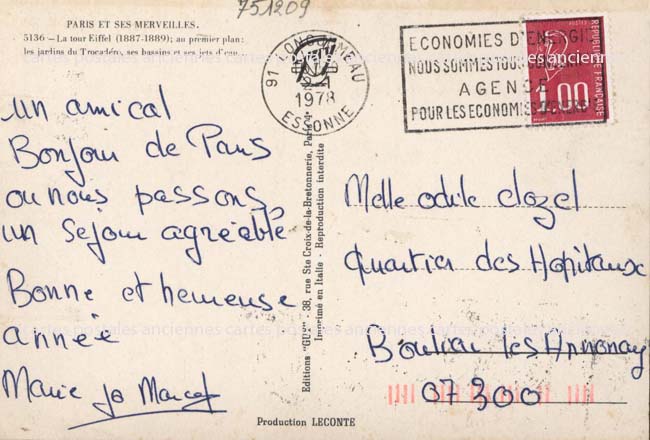 751209
PARIS ET SES MERVEILLES.
5136 - La tour Eiffel (1887-1889); au premier plan:
les jardins du Trocadéro, ses bassins et ses jets d'eau.
91 LONGJUMEAU
1978
ESSONNE
ECONOMIES D'ENERGIE
NOUS SOMMES TOUS
AGENCE
POUR LES ECONOMIES D'ENERGIE
POSTES
REPUBLIQUE FRANÇAISE
1.00
un amical
Bonjour de Paris
ou nous passons
un sejour agréable
Bonne et heureuse
année
Marie Jo Marcel
Editions "GUY" - 38, rue Ste Croix-de-la-Bretonnerie, Paris-4
Imprimé en Italie - Reproduction interdite
Melle odile clozel
Quartier des Hopitaux
Boulieu les Annonay
07300
cartes postales anciennes cartes postales anciennes
Production LECONTE